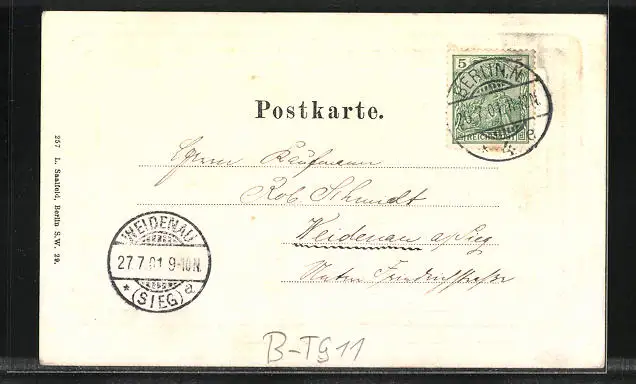 5
REICHSPOST
BERLIN.N.
26.7.01.9-10N.
* 4 e
Postkarte.
Herrn Kaufmann
Rob. Schmidt
Weidenau a/Sieg
Untere Friedrichstrasse
WEIDENAU
27.7.01 9-10N.
* (SIEG) a
257 L. Saalfeld, Berlin S.W. 29.
B-TG11